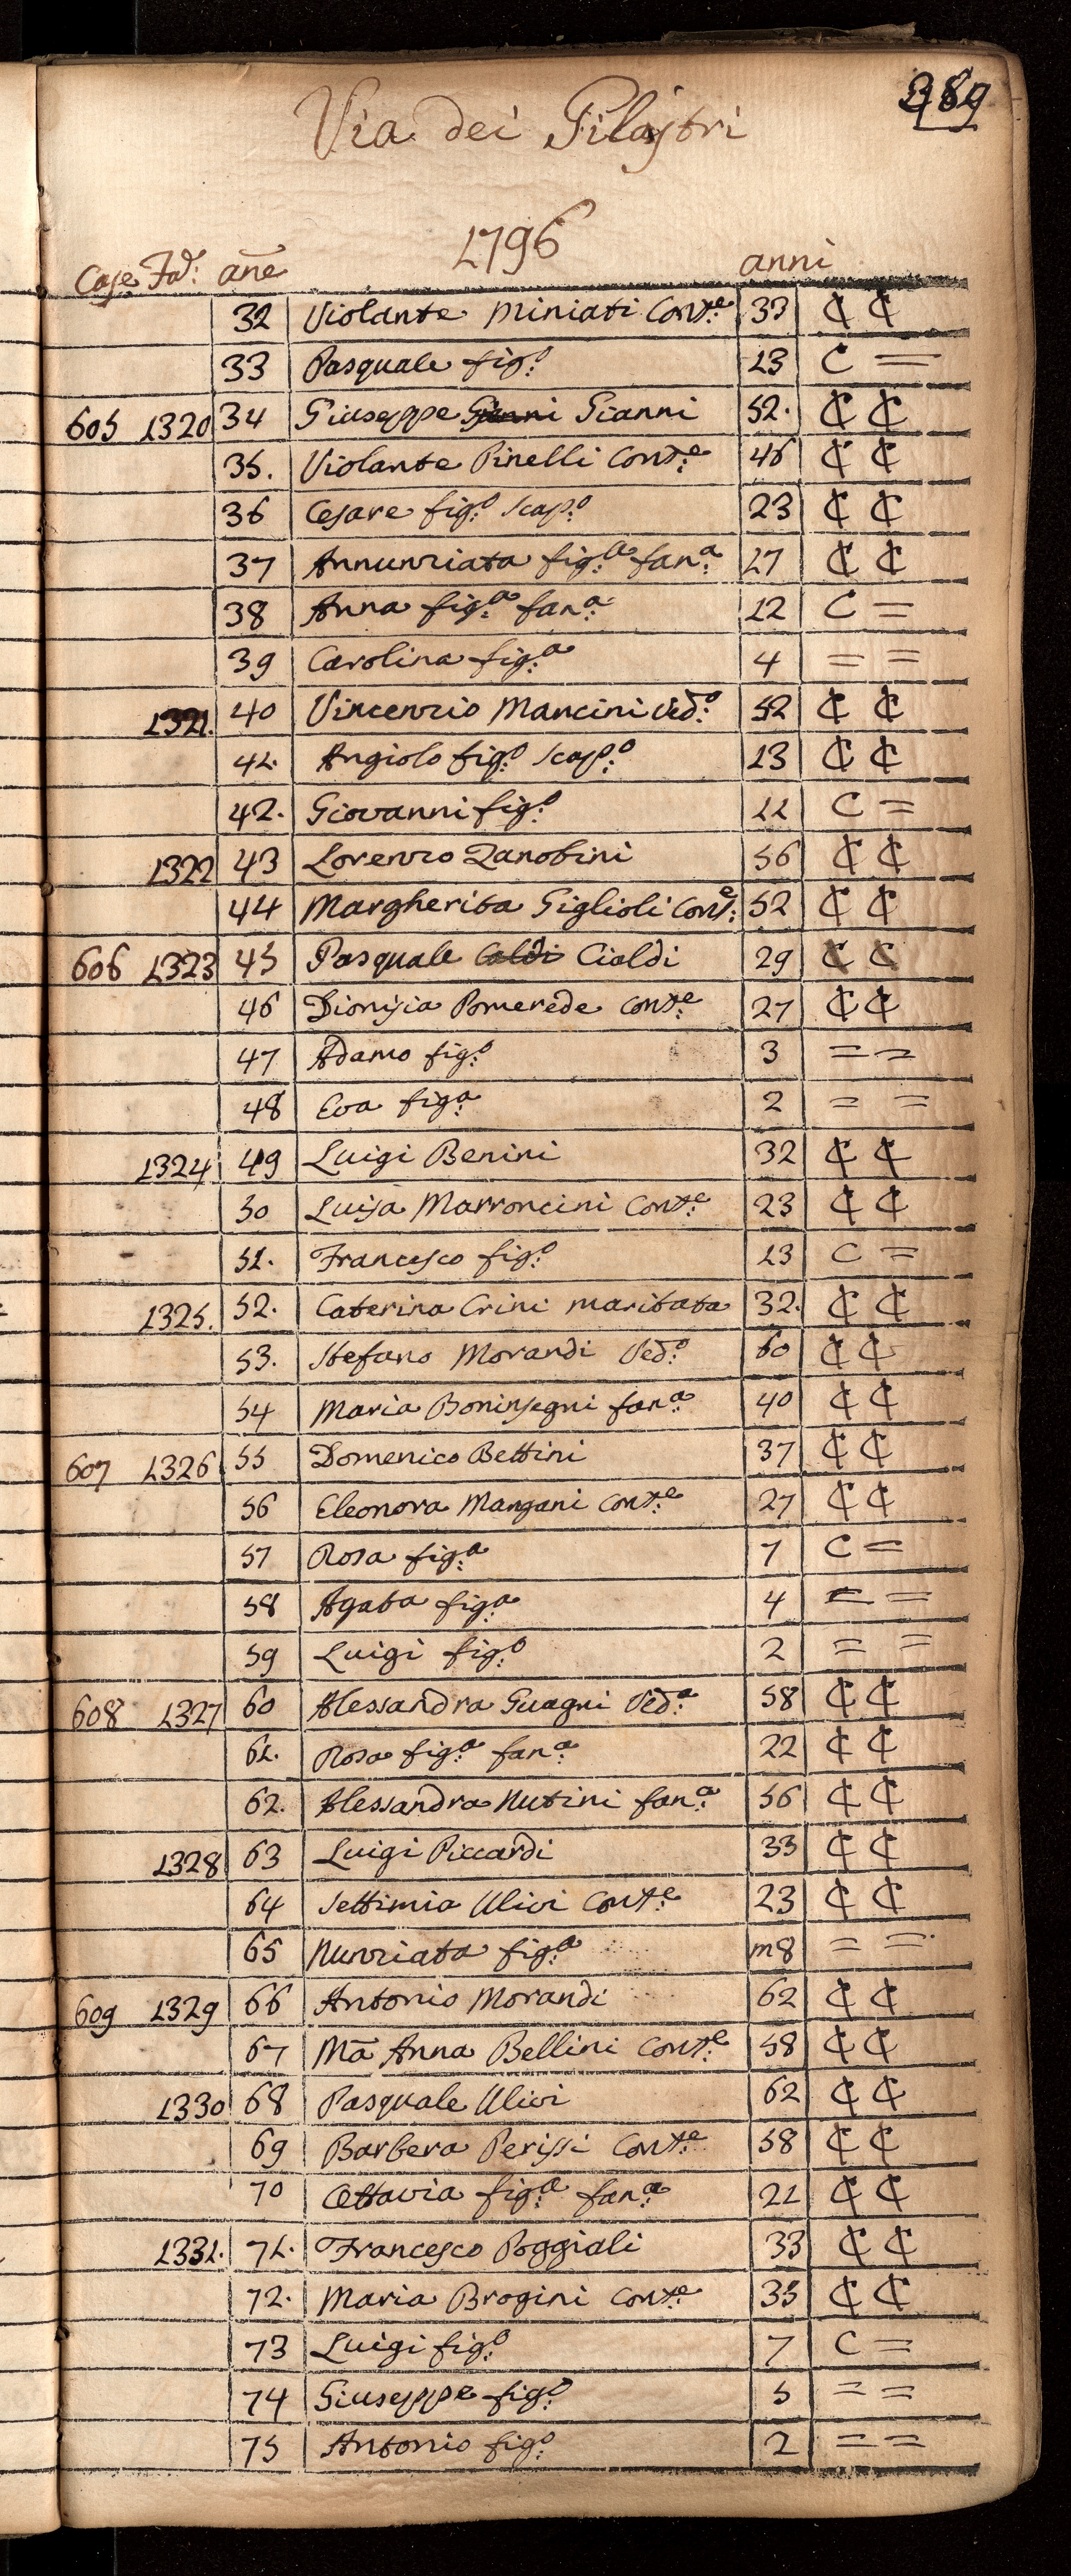 389
Via dei Pilastri
1796
Case Fa.: añe anni
32 Violante Miniati Cont.e 33 ₵ ₵
33 Pasquale fig.o 13 C =
605 1320 34 Giuseppe Gianni Gianni 52. ₵ ₵
35. Violante Pinelli Cont.e 46 ₵ ₵
36 Cesare fig.o scap.o 23 ₵ ₵
37 Annunziata fig.a fan.a 17 ₵ ₵
38 Anna fig.a fan.a 12 C =
39 Carolina fig.a 4 = =
1321. 40 Vincenzio Mancini Ved.o 52 ₵ ₵
41. Angiolo fig.o scap.o 13 ₵ ₵
42. Giovanni fig.o 11 C =
1322 43 Lorenzo Zanobini 56 ₵ ₵
44 Margherita Giglioli Cont.e 52 ₵ ₵
606 1323 45 Pasquale Caldi Cialdi 29 ₵ ₵
46 Dionisia Pomerede Cont.e 27 ₵ ₵
47 Adamo fig.o 3 = =
48 Eva fig.a 2 = =
1324 49 Luigi Benini 32 ₵ ₵
50 Luisa Marroncini Cont.e 23 ₵ ₵
51. Francesco fig.o 13 C =
1325. 52. Caterina Crini maritata 32. ₵ ₵
53. Stefano Morandi Ved.o 60 ₵ ₵
54 Maria Boninsegni fan.a 40 ₵ ₵
607 1326 55 Domenico Bettini 37 ₵ ₵
56 Eleonora Mangani Cont.e 27 ₵ ₵
57 Rosa fig.a 7 C =
58 Agata fig.a 4 = =
59 Luigi fig.o 2 = =
608 1327 60 Alessandra Guagni Ved.a 58 ₵ ₵
61. Rosa fig.a fan.a 22 ₵ ₵
62. Alessandra Nutini fan.a 56 ₵ ₵
1328 63 Luigi Piccardi 33 ₵ ₵
64 Settimia Ulivi Cont.e 23 ₵ ₵
65 Nunziata fig.a m8 = =
609 1329 66 Antonio Morandi 62 ₵ ₵
67 Mã Anna Bellini Cont.e 58 ₵ ₵
1330 68 Pasquale Ulivi 62 ₵ ₵
69 Barbera Perissi Cont.e 58 ₵ ₵
70 Ottavia fig.a fan.a 21 ₵ ₵
1331. 71. Francesco Poggiali 33 ₵ ₵
72. Maria Brogini Cont.e 35 ₵ ₵
73 Luigi fig.o 7 C =
74 Giuseppe fig.o 5 = =
75 Antonio fig.o 2 = =